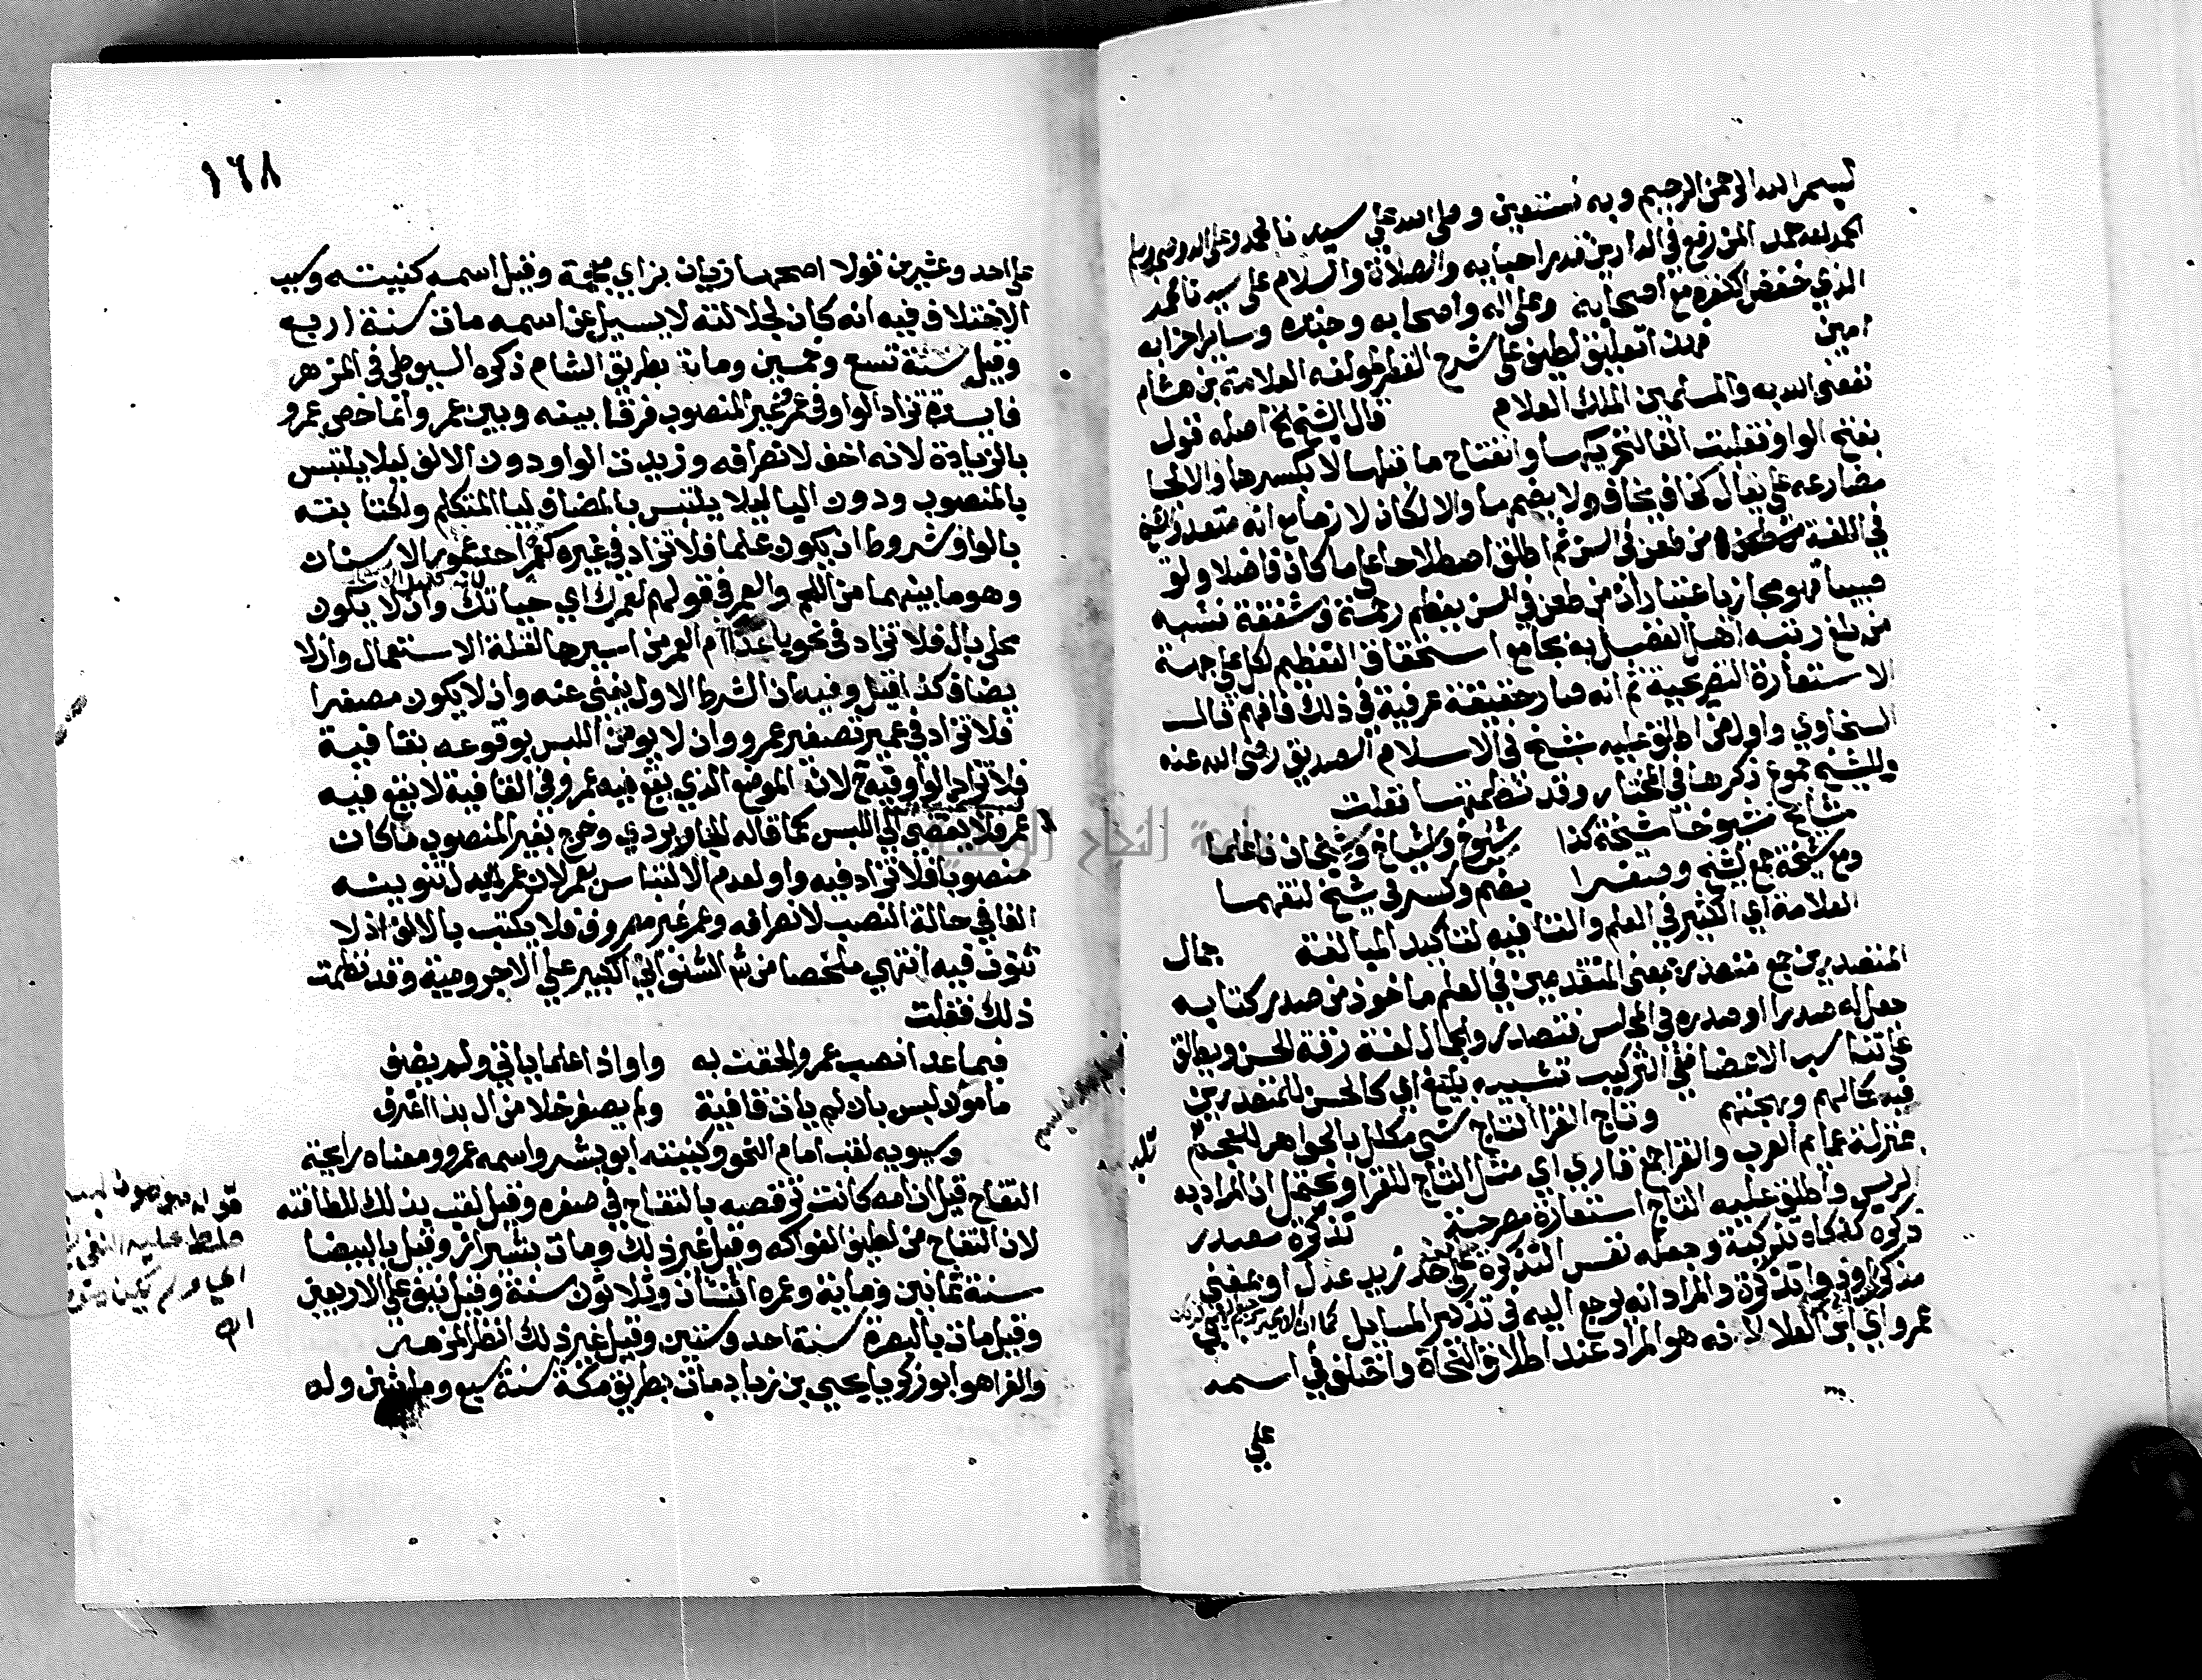 بسم الله الرحمن الرحيم وبه نستعين وصلى الله على سيدنا محمد وعلى اله وصحبه وسلم
الحمد لله حمد المن رفع في الدارين قدر احبابه والصلاة والسلام على سيدنا محمد
الذي خفض الكفرة مع اصحابه وعلى اله واصحابه وجنده وساير احزابه
امين فهذا تعليق لطيف على شرح القطر لمولفه العلامة بن هشام
نفعني الله به والمسلمين الملك العلام قال الشيخ اصله قول
بفتح الواو فقلبت الفا لتحركها وانفتاح ما قبلها لا بكسرها والا لجا
مضارعه على يقال كخاف يخاف ولا بضمها والا لكان لازما مع انه متعد والشيخ
في اللغة من طعن في السن ثم اطلق اصطلاحا على ما كان فاضلا ولو
صبيا فهو مجاز باعتبار ان من طعن في السن يعظم رحمة وشفقة فشبه
من بلغ رتبة اهل الفضل به بجامع استحقاق التعظيم لكل على جهة
الاستعارة التصريحية ثم انه صار حقيقة عرفية في ذلك فافهم قال
السخاوي واول من اطلق عليه شيخ في الاسلام الصديق رضي الله عنه
وللشيخ جموع ذكرها في المختار وقد نظمتها فقلت
مشايخ شيوخا شيخة كذا شيوخ واشياخ وشيخان فاعلما
ومع شيخة جمع لشيخ وصغرا بضم وكسر في شيخ لتفهما
العلامة اي الكثير في العلم والتا فيه لتاكيد المبالغة جمال
المتصدرين جمع متصدر بمعنى المتقدمين في العلم ماخوذ من صدر كتابه
جعل له صدرا او صدره في المجلس فتصدر والجمال لغة رقة الحسن ويطلق
على تناسب الاعضا ففي التركيب تشبيه بليغ اي كالحسن للمتصدرين
فبه كمالهم وبهجتهم وتاج القرا التاج شي مكلل بالجواهر للعجم
بمنزلة عمايم العرب والقرا جمع قاري اي مثل التاج للقرا ويحتمل ان المراد به
الريس واطلق عليه التاج استعارة مصرحة تذكرة مصدر
ذكره كزكاه تزكية وجعله نفس التذكرة على حد زيد عدل او بمعنى
مذكر او ذو تذكرة والمراد انه يرجع اليه في تذكر المسايل ابي
عمرو اي ابن العلا لانه هو المراد عند اطلاق النحاة واختلف في اسمه
علي
١٦٨
على احد وعشرين قولا اصحها زبان بزاي معجمة وقيل اسمه كنيته وسبب
الاختلاف فيه انه كان لجلالته لا يسيل عن اسمه مات سنة اربع
وقيل سنة تسع وخمسين ومات بطريق الشام ذكره السيوطي في المزهر
فايدة تزاد الواو في عمرو غير المنصوب فرقا بينه وبين عمر وانما خص عمرو
بالزيادة لانه اخف لانصرافه وزيدت الواو دون الالف ليلا يلتبس
بالمنصوب ودون اليا ليلا يلتبس بالمضاف ليا المتكلم ولكتابته
بالواو شروط ان يكون علما فلا تزاد في غيره كعمر احد عمور الاسنان
وهو ما بينهما من اللحم والعمر في قولهم لعمرك اي حياتك وان لا يكون
محلى بال فلا تزاد في نحو باعد ام العمر من اسيرها لقلة الاستعمال وان لا
يضاف كذا قيل وفيه ان الشرط الاول يغني عنه وان لا يكون مصغرا
فلا تزاد في عمير تصغير عمرو وان لا يومن اللبس بوقوعه بقافية
فلا تزاد الواو فيه لانه الموضع الذي يقع فيه عمرو في القافية لا يقع فيه
عمر ولا يفضي الى اللبس كما قاله الجاربردي وخرج بغير المنصوب ما كان
منصوبا فلا تزاد فيه واو لعدم الالتباس بعمر لان عمرا يبدل تنوينه
الفا في حالة النصب لانصرافه وعمر غير مصروف فلا يكتب بالالف اذ لا
تنوين فيه انتهى ملخصا من ش الشنواني الكبير على الاجرومية وقد نظمت
ذلك فقلت
فيما عدا نصب عمرو الحقت به واو اذا علما ياتي ولم يضف
مامون لبس بان لم يات قافية ولم يصغر خلا من ال بذا اعترف
وسيبويه لقب امام النحو وكنيته ابو بشر واسمه عمرو ومعناه رايحة
التفاح قيل ان امه كانت ترقصه بالتفاح في صغره وقيل لقب بذلك للطافته
لان التفاح من لطيف الفواكه وقيل غير ذلك ومات بشيراز وقيل بالبيضا
سنة ثمانين وماية وعمره اثنتان وثلاثون سنة وقيل نيف على الاربعين
وقيل مات بالبصرة سنة احد وستين وقيل غير ذلك انظر المزهر
والفرا هو ابو زكريا يحيى بن زياد مات بطريق مكة سنة سبع ومايتين وله